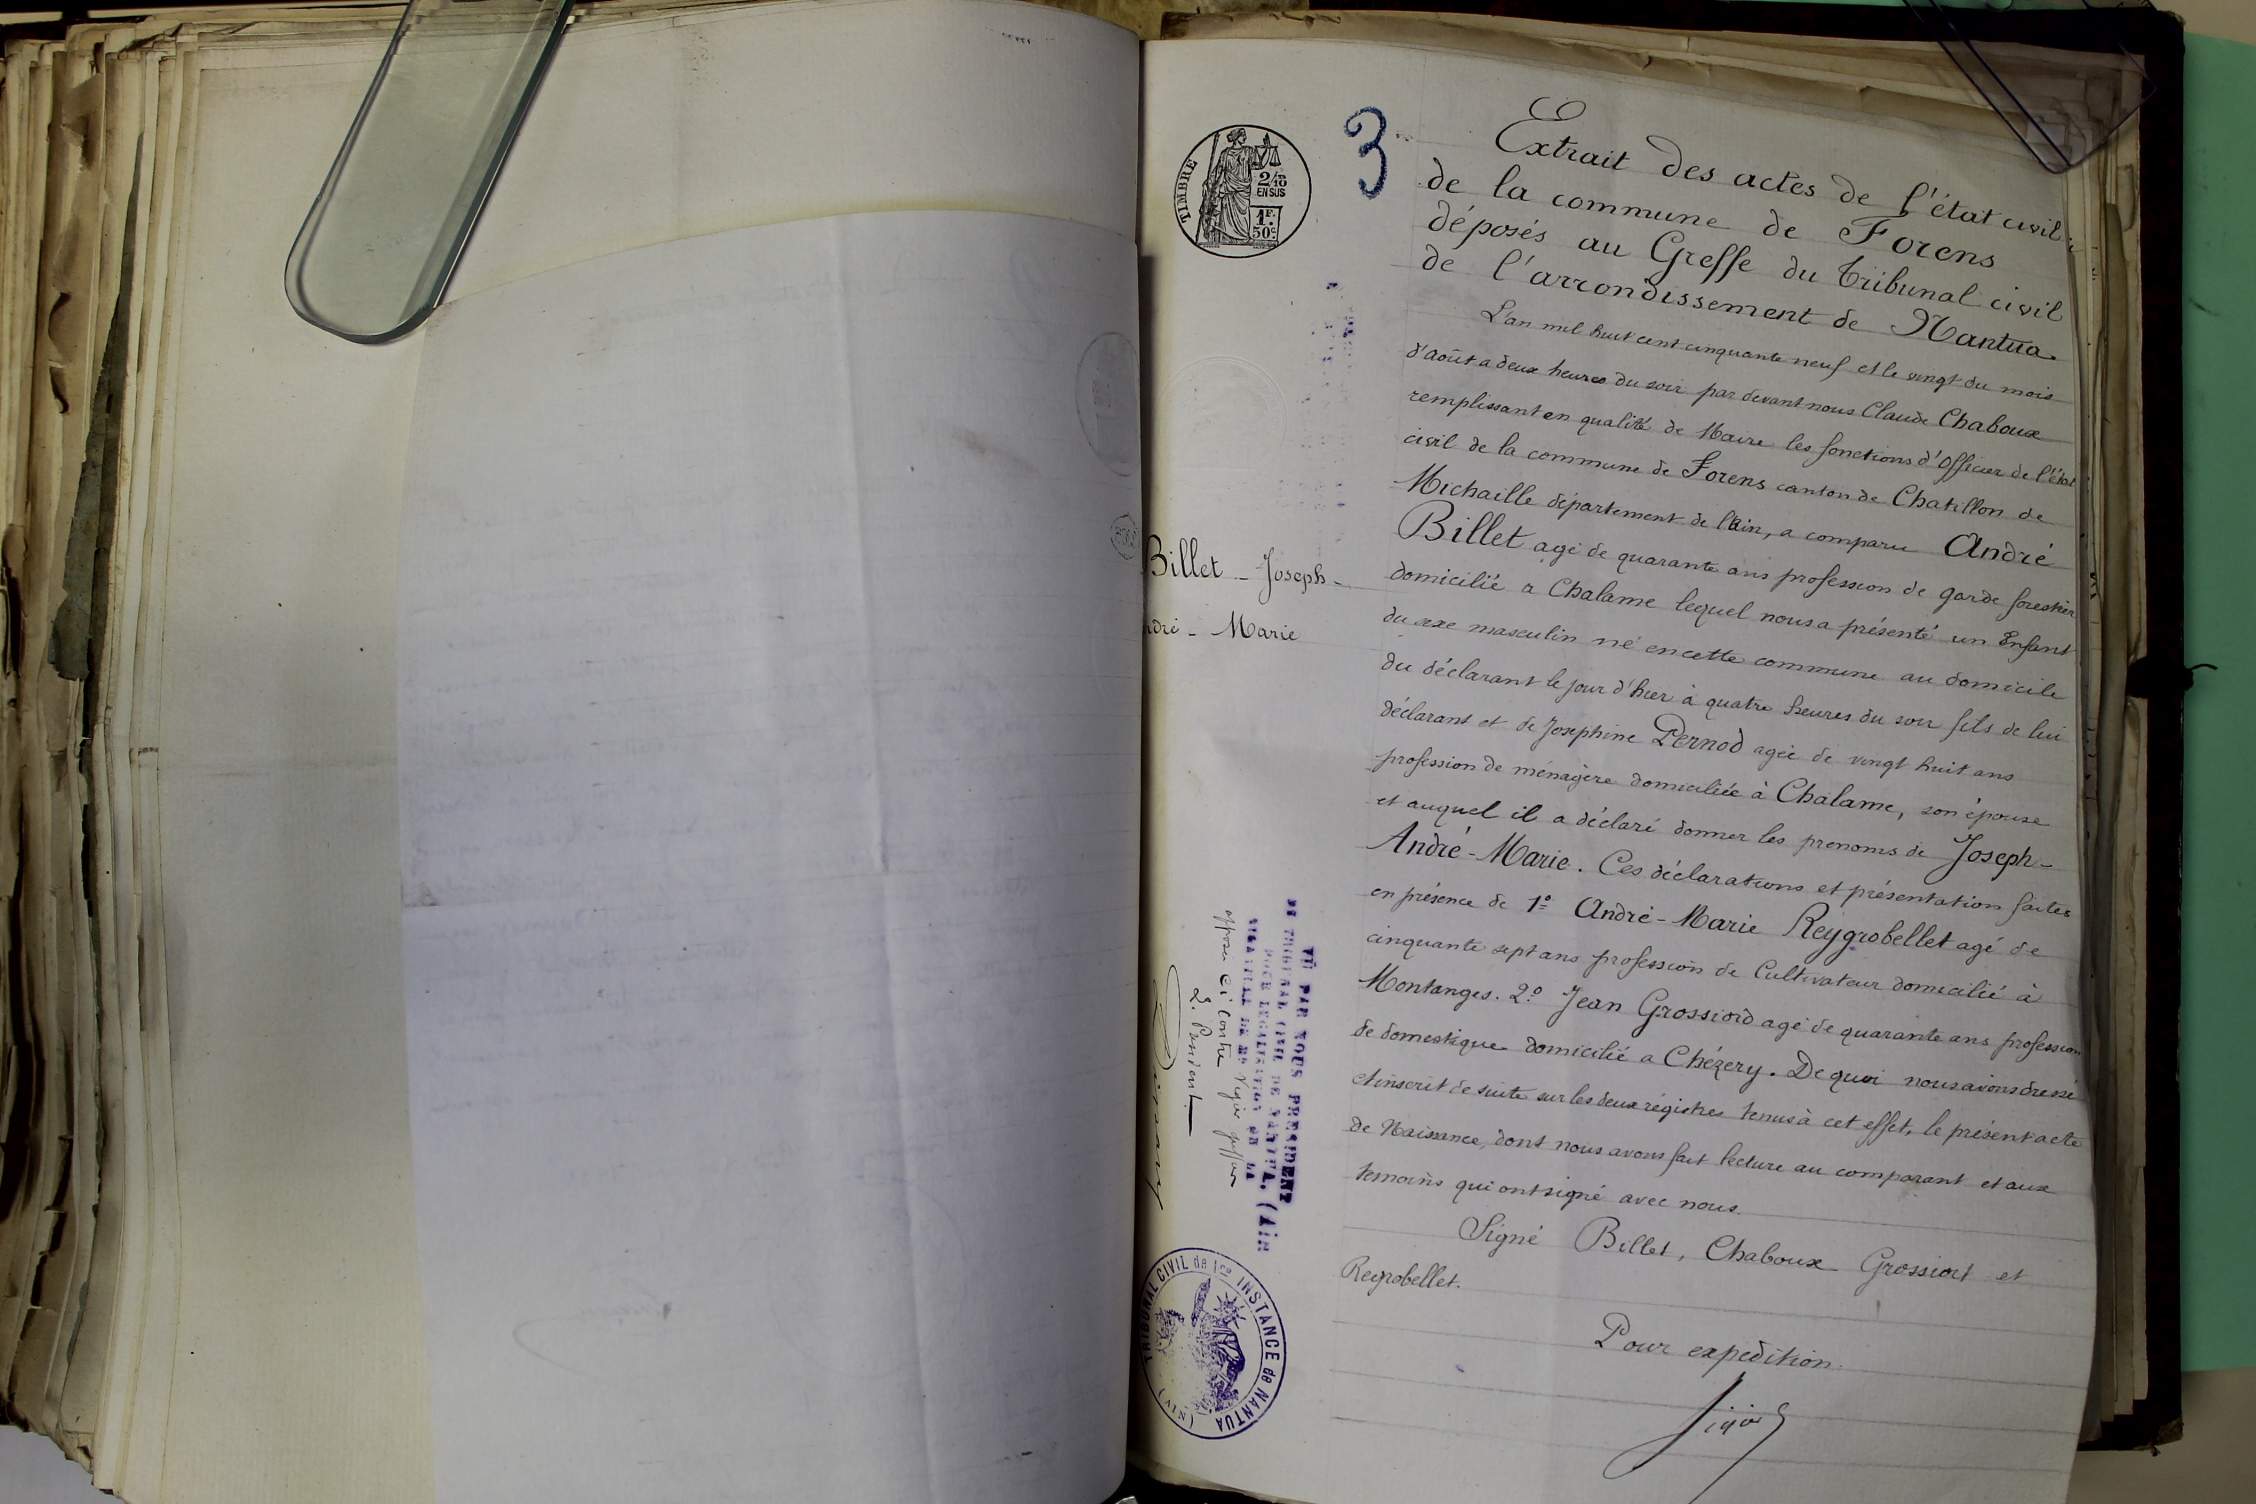 TIMBRE
2/10
EN SUS
1F.
50c.
3
Extrait des actes de l'état civil
de la commune de Forens
déposés au Greffe du Tribunal civil
de l'arrondissement de Nantua.
L'an mil huit cent cinquante neuf et le vingt du mois
d'août a deux heures du soir par devant nous Claude Chaboux
remplissant en qualité de Maire les fonctions d'Officier de l'état
civil de la commune de Forens canton de Chatillon de
Michaille département de l'Ain, a comparu André
Billet agé de quarante ans profession de garde forestier
domicilié a Chalame lequel nous a présenté un Enfant
du sexe masculin né en cette commune au domicile
du déclarant le jour d'hier à quatre heures du soir fils de lui
déclarant et de Josephine Pernod agée de vingt huit ans
profession de ménagère domiciliée à Chalame, son épouse
et auquel il a déclaré donner les prenoms de Joseph-
André-Marie. Ces déclarations et présentation faites
en présence de 1º André-Marie Reygrobellet agé de
cinquante sept ans profession de Cultivateur domicilié à
Montanges. 2º Jean Grossiord agé de quarante ans profession
de domestique domicilié a Chézery. De quoi nous avons dressé
et inscrit de suite sur les deux régistres tenus à cet effet, le présent acte
de Naissance, dont nous avons fait lecture au comparant et aux
temoins qui ont signé avec nous.
Signé Billet, Chaboux Grossiort et
Reygrobellet.
Pour expédition.
Billet - Joseph-
ndré - Marie
VU PAR NOUS PRESIDENT
DU TRIBUNAL CIVIL DE NANTUA, (AIN
POUR LEGALISATION DE LA
SIGNATURE DE Mr Vigier greffier
apposée ci contre
Le President
TRIBUNAL CIVIL de 1ère INSTANCE de NANTUA
(AIN)